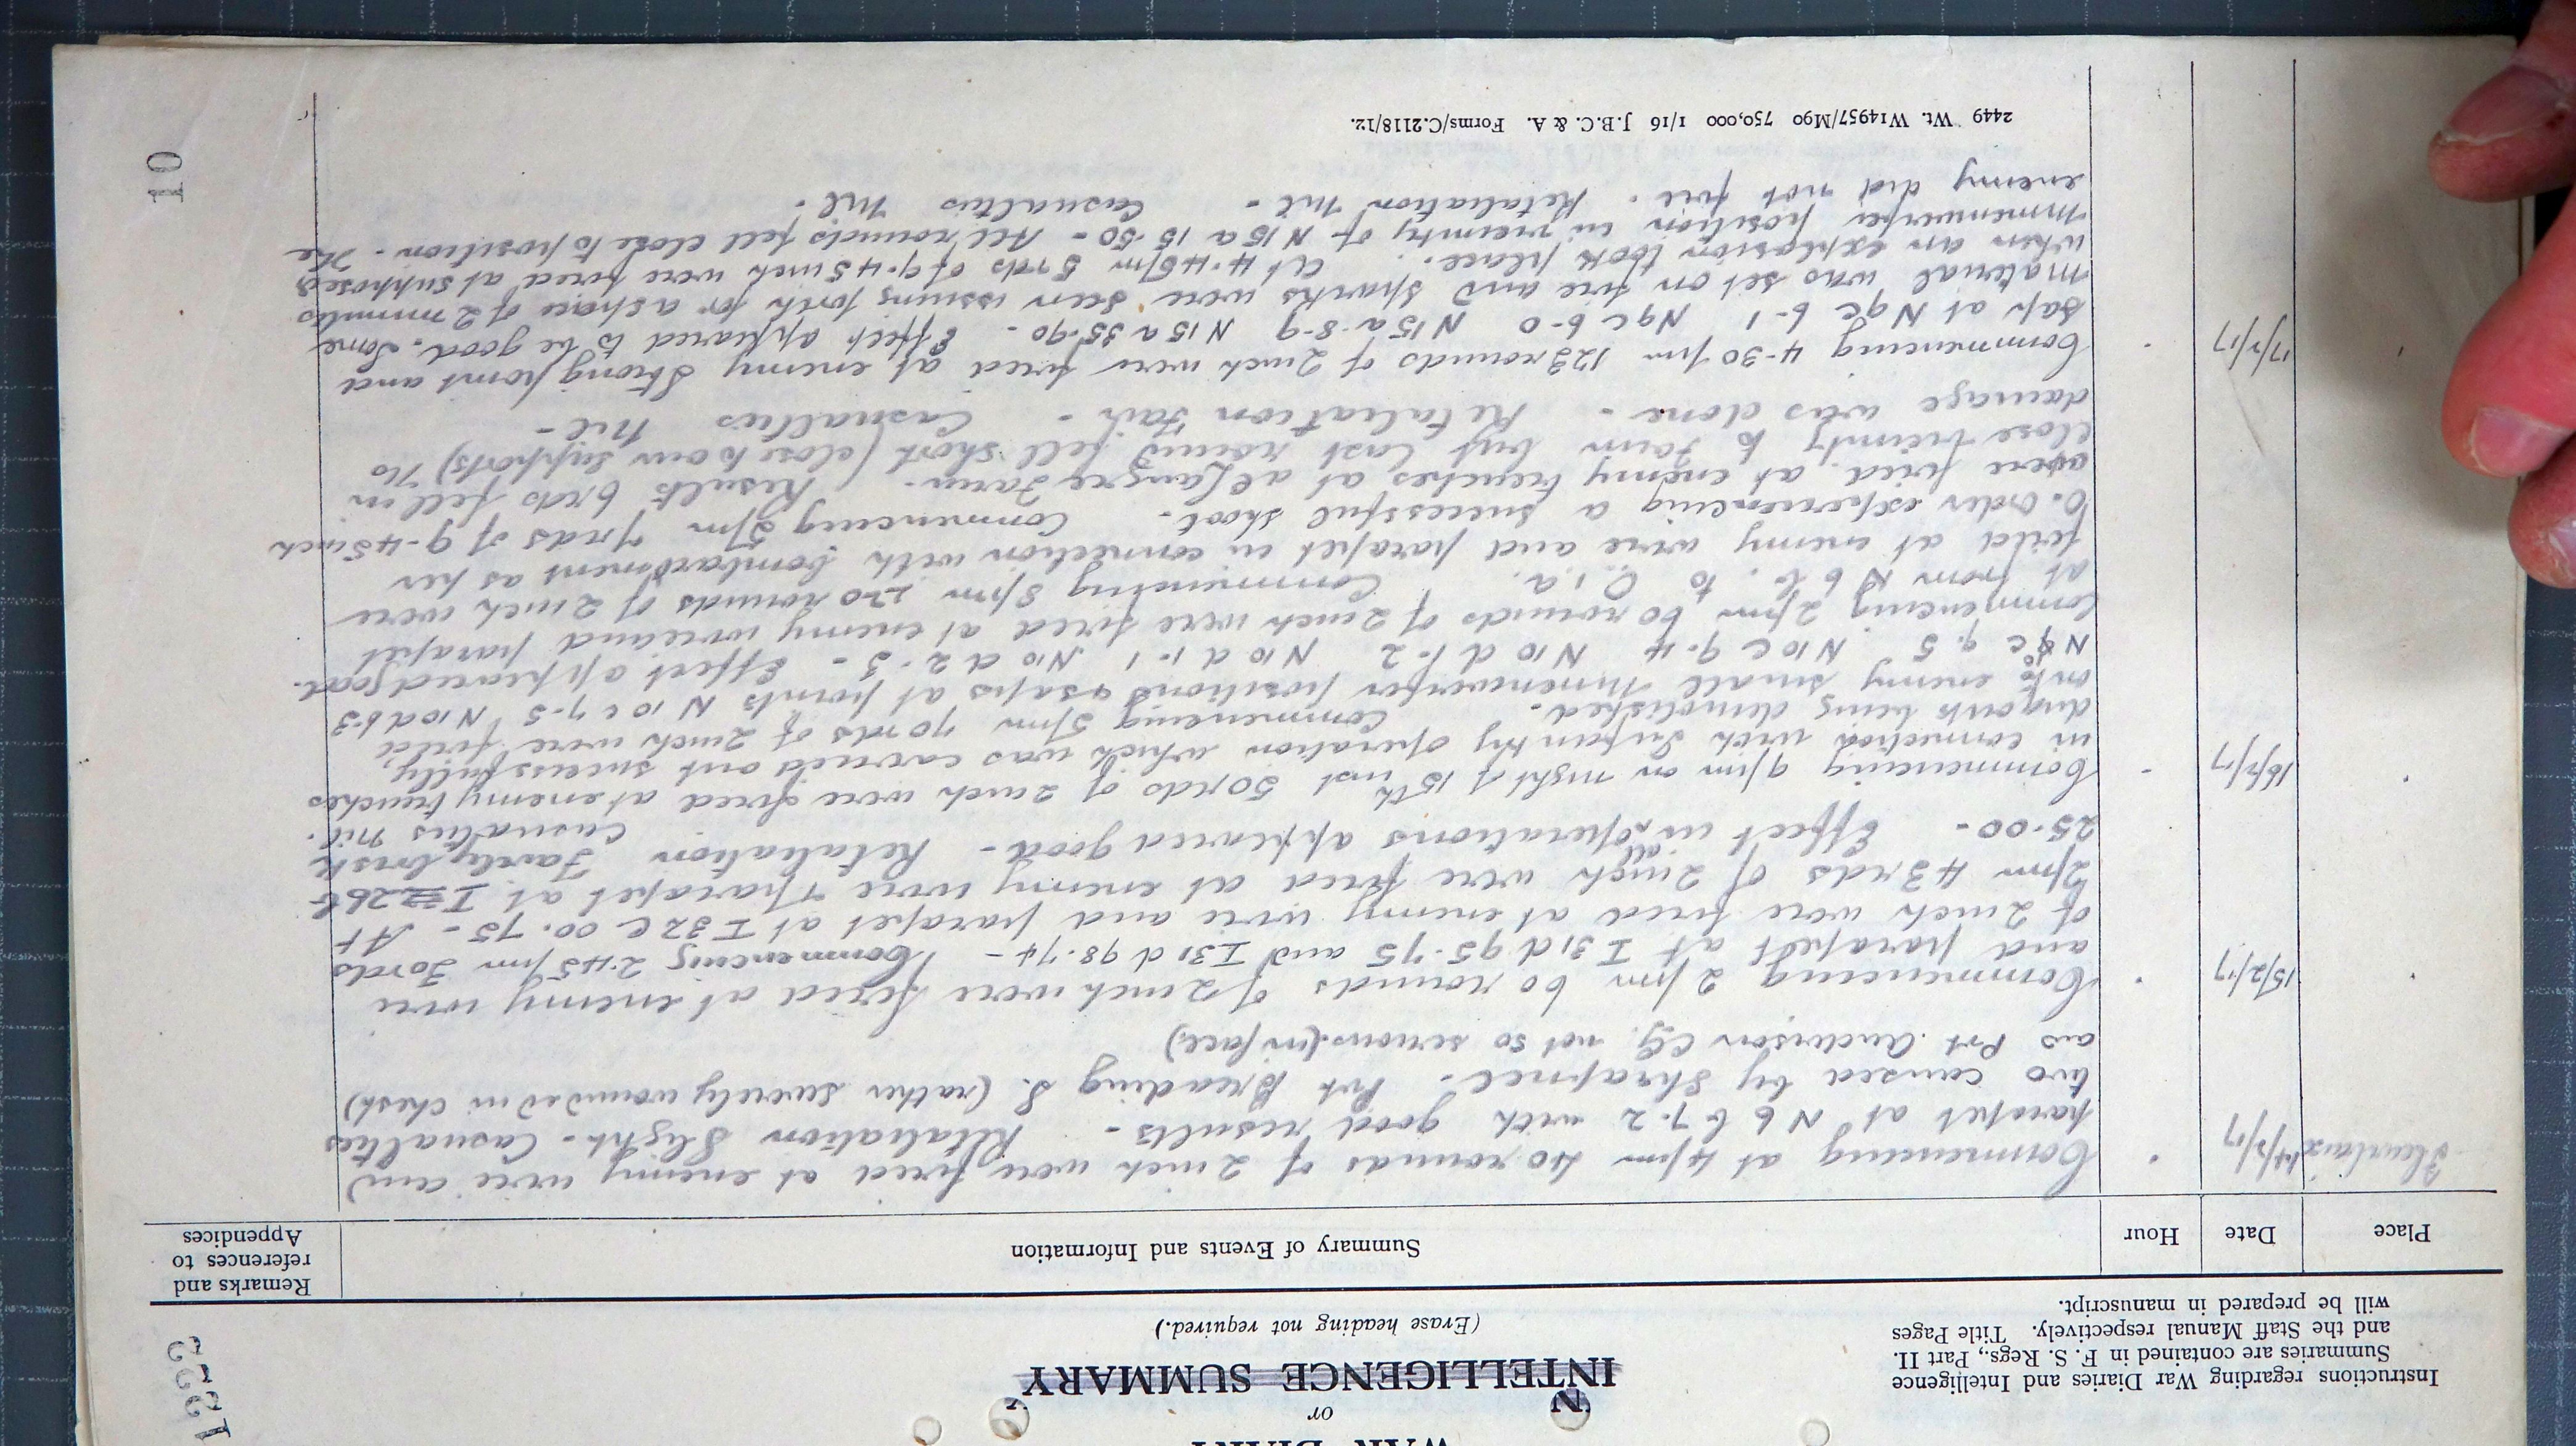 WAR DIARY
or
INTELLIGENCE SUMMARY
(Erase heading not required.)
Instructions regarding War Diaries and Intelligence
Summaries are contained in F. S. Regs., Part II.
and the Staff Manual respectively. Title Pages
will be prepared in manuscript.
1522
Place
Date
Hour
Summary of Events and Information
Remarks and
references to
Appendices
Fleurbaix 14/2/17 Commencing at 4pm 40 rounds of 2 inch were fired at enemy wire and
parapet at N 6 b 7.2 with good results - Retaliation Slight - Casualties
two caused by Shrapnel - Pvt Breading S. (rather severely wounded in chest)
and Pvt Anderson CG. not so serious (in face)
15/2/17 Commencing 2pm 60 rounds of 2 inch were fired at enemy wire
and parapet at I 31 d 95.75 and I 31 d 98.74 - Commencing 2.45pm 30rds
of 2 inch were fired at enemy wire and parapet at I 32 c 00.75 - At
2pm 43rds of 2 inch were fired at enemy wire & parapet at I 26 b
25.00 - Effect in all operations appeared good - Retaliation Fairly brisk
Casualties Nil.
16/2/17 Commencing 9pm on night of 15th inst 50rds of 2 inch were fired at enemy trenches
in connection with Infantry operation which was carried out successfully,
dugouts being demolished. Commencing 3pm 70 rds of 2 inch were fired
on to enemy small Minenwerfer positions & saps at points N 10 c 7-5 N 10 d 6-3
N 9 c 9.5 N 10 c 9.4 N 10 d 1-2 N 10 d 1-1 N 10 d 2-3 - Effect appeared good.
Commencing 2pm 60 rounds of 2 inch were fired at enemy wire and parapet
at from N 6 b. to O.1.a. Commencing 8pm 220 rounds of 2 inch were
fired at enemy wire and parapet in connection with bombardment as per
O. Order experiencing a successful shoot. Commencing 3pm 7rds of 9.45 inch
were fired at enemy trenches at at Langre Farm. Results 6rds fell in
close vicinity to Farm but last round fell short (close to our supports) No
damage was done - Retaliation Fair - Casualties Nil -
17/2/17 Commencing 4-30pm 123 rounds of 2 inch were fired at enemy Strong point and
Sap at N 9 c 6-1 N 9 c 6-0 N 15 a 8-9 N 15 a 35-90 - Effect appeared to be good. Some
material was set on fire and sparks were seen issuing forth for a space of 2 minutes
when an explosion took place. At 4.45pm 5rds of 9.45 inch were fired at supposed
Minenwerfer position in vicinity of N 15 a 15.50 - All rounds fell close to position. The
enemy did not fire. Retaliation Nil - Casualties Nil -
2449 Wt. W14957/M90 750,000 1/16 J.B.C. & A. Forms/C.2118/12.
10